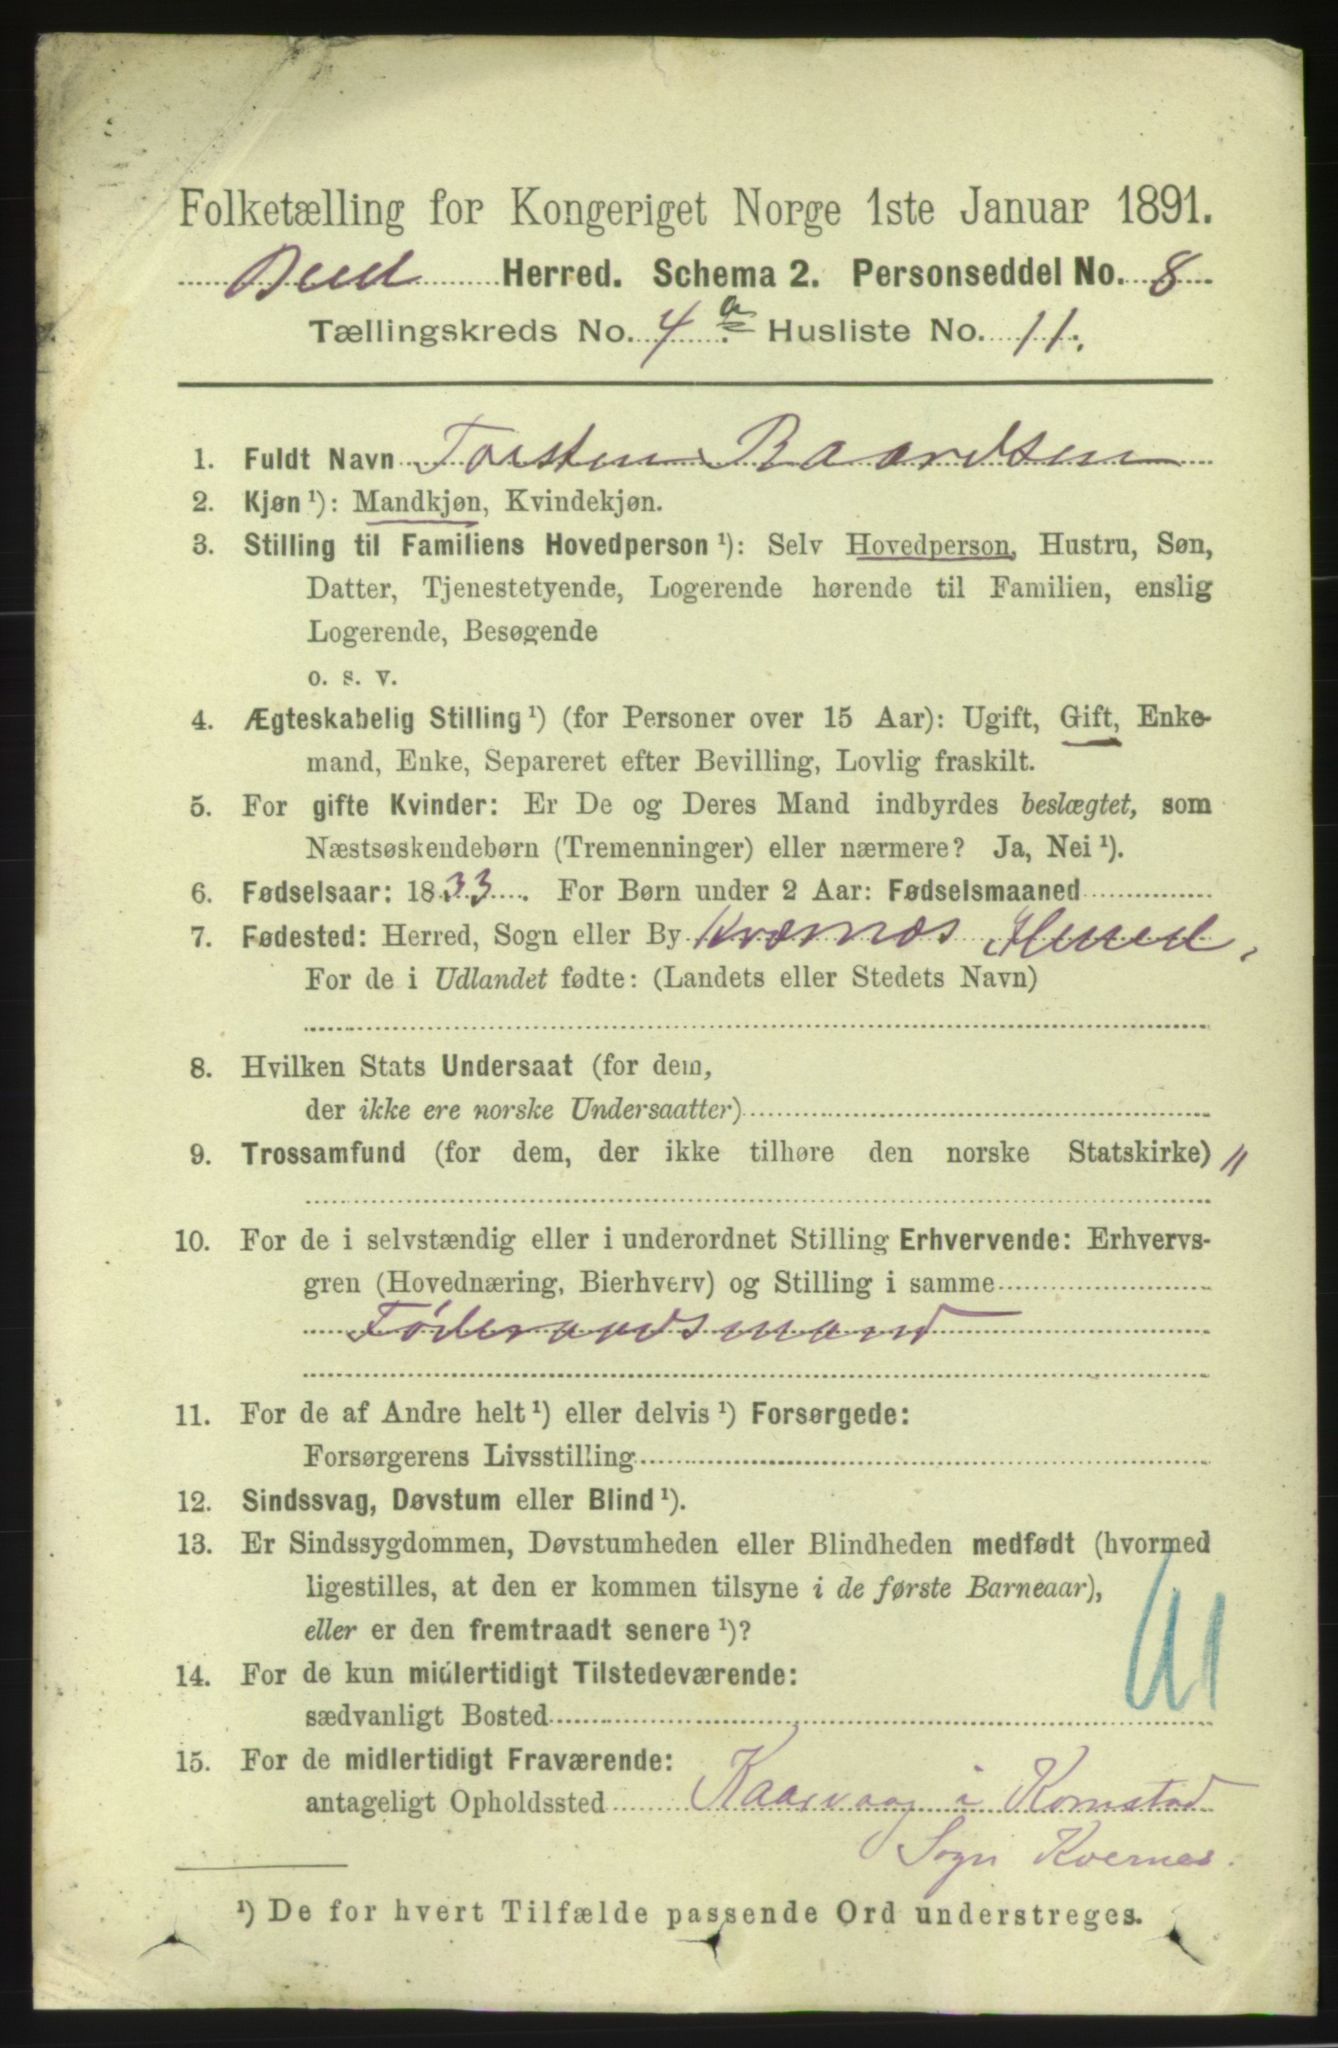 Folketælling for Kongeriget Norge 1ste Januar 1891.
Bud Herred. Schema 2. Personseddel No. 8
Tællingskreds No. 4 a. Husliste No. 11.
1. Fuldt Navn Torsten Baardsen
2. Kjøn ¹): Mandkjøn, Kvindekjøn.
3. Stilling til Familiens Hovedperson ¹): Selv Hovedperson, Hustru, Søn,
Datter, Tjenestetyende, Logerende hørende til Familien, enslig
Logerende, Besøgende
o. s. v.
4. Ægteskabelig Stilling ¹) (for Personer over 15 Aar): Ugift, Gift, Enke-
mand, Enke, Separeret efter Bevilling, Lovlig fraskilt.
5. For gifte Kvinder: Er De og Deres Mand indbyrdes beslægtet, som
Næstsøskendebørn (Tremenninger) eller nærmere? Ja, Nei ¹).
6. Fødselsaar: 1833. For Børn under 2 Aar: Fødselsmaaned
7. Fødested: Herred, Sogn eller By Kværnæs Herred.
For de i Udlandet fødte: (Landets eller Stedets Navn)
8. Hvilken Stats Undersaat (for dem,
der ikke ere norske Undersaatter)
9. Trossamfund (for dem, der ikke tilhøre den norske Statskirke) "
10. For de i selvstændig eller i underordnet Stilling Erhvervende: Erhvervs-
gren (Hovednæring, Bierhverv) og Stilling i samme
Føderaadsmand
11. For de af Andre helt ¹) eller delvis ¹) Forsørgede:
Forsørgerens Livsstilling
12. Sindssvag, Døvstum eller Blind ¹).
13. Er Sindssygdommen, Døvstumheden eller Blindheden medfødt (hvormed
ligestilles, at den er kommen tilsyne i de første Barneaar),
eller er den fremtraadt senere ¹)?
14. For de kun midlertidigt Tilstedeværende:
sædvanligt Bosted
15. For de midlertidigt Fraværende:
antageligt Opholdssted Kaarvaag i Kornstad
Sogn Kvernes.
¹) De for hvert Tilfælde passende Ord understreges.